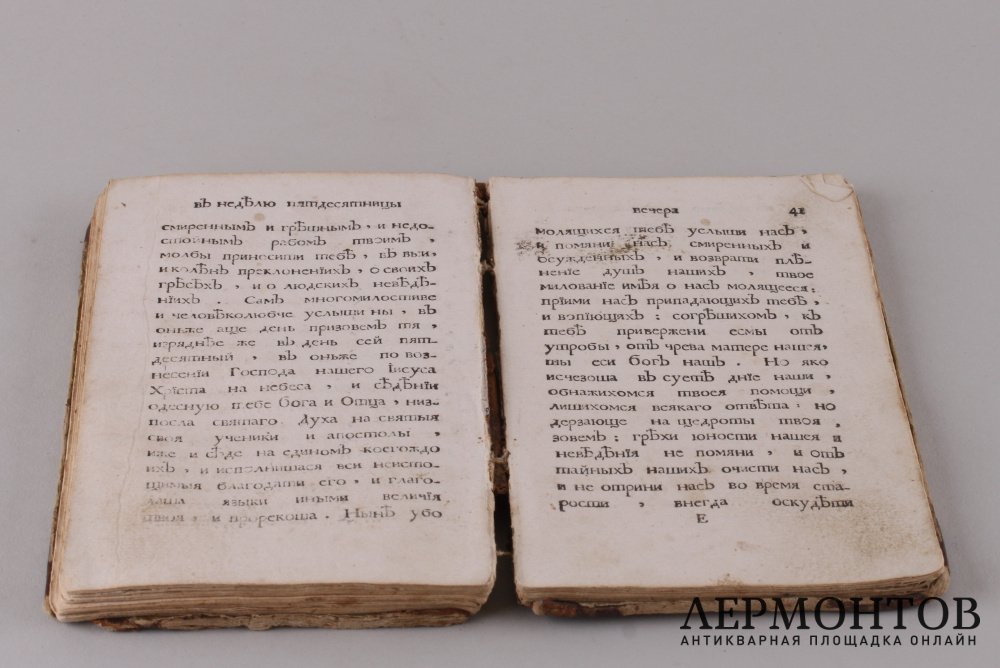 въ недѣлю пятдесятницы
смиреннымъ и грѣшнымъ, и недо-
стойнымъ рабомъ твоимъ,
молбы приносити тебѣ, въ выи,
и колѣнъ преклоненіихъ, о своихъ
грѣсѣхъ, и о людскихъ невѣдѣ-
ніихъ. Самъ многомилостиве
и человѣколюбче услыши ны, въ
оньже аще день призовемъ тя,
изряднѣе же въ день сей пят-
десятный, въ оньже по воз-
несении Господа нашего Іисуса
Хрїста на небеса, и сѣдѣніи
одесную тебе бога и Отца, низ-
посла святаго Духа на святыя
своя ученики и апостолы,
иже и сѣде на единомъ коегождо
ихъ, и исполнишася вси неисто-
щимыя благодати его, и глаго-
лаша языки иными величія
твоя, и прорекоша. Нынѣ убо
вечера 41
молящихся тебѣ услыши насъ,
и помяни насъ смиренныхъ и
осужденныхъ, и возврати плѣ-
неніе душъ нашихъ, твое
милованіе имѣя о насъ молящееся:
пріими насъ припадающихъ тебѣ,
и вопіющихъ: согрѣшихомъ, къ
тебѣ привержени есмы отъ
утробы, отъ чрева матере нашея,
ты еси богъ нашъ. Но яко
исчезоша въ суетѣ дніе наши,
обнажихомся твоея помощи,
лишихомся всякаго отвѣта: но
дерзающе на щедроты твоя,
зовемъ: грѣхи юности нашея и
невѣдѣнія не помяни, и отъ
тайныхъ нашихъ очисти насъ,
и не отрини насъ во время ста-
рости, внегда оскудѣти
Е
ЛЕРМОНТОВ
АНТИКВАРНАЯ ПЛОЩАДКА ОНЛАЙН